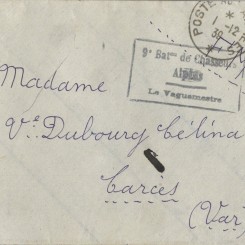 POSTE AUX
1 -12
39
9e Bat.on de Chasseurs
Alpins
Le Vaguemestre
Madame
Vve Dubourg Célina
Carcès
(Var)